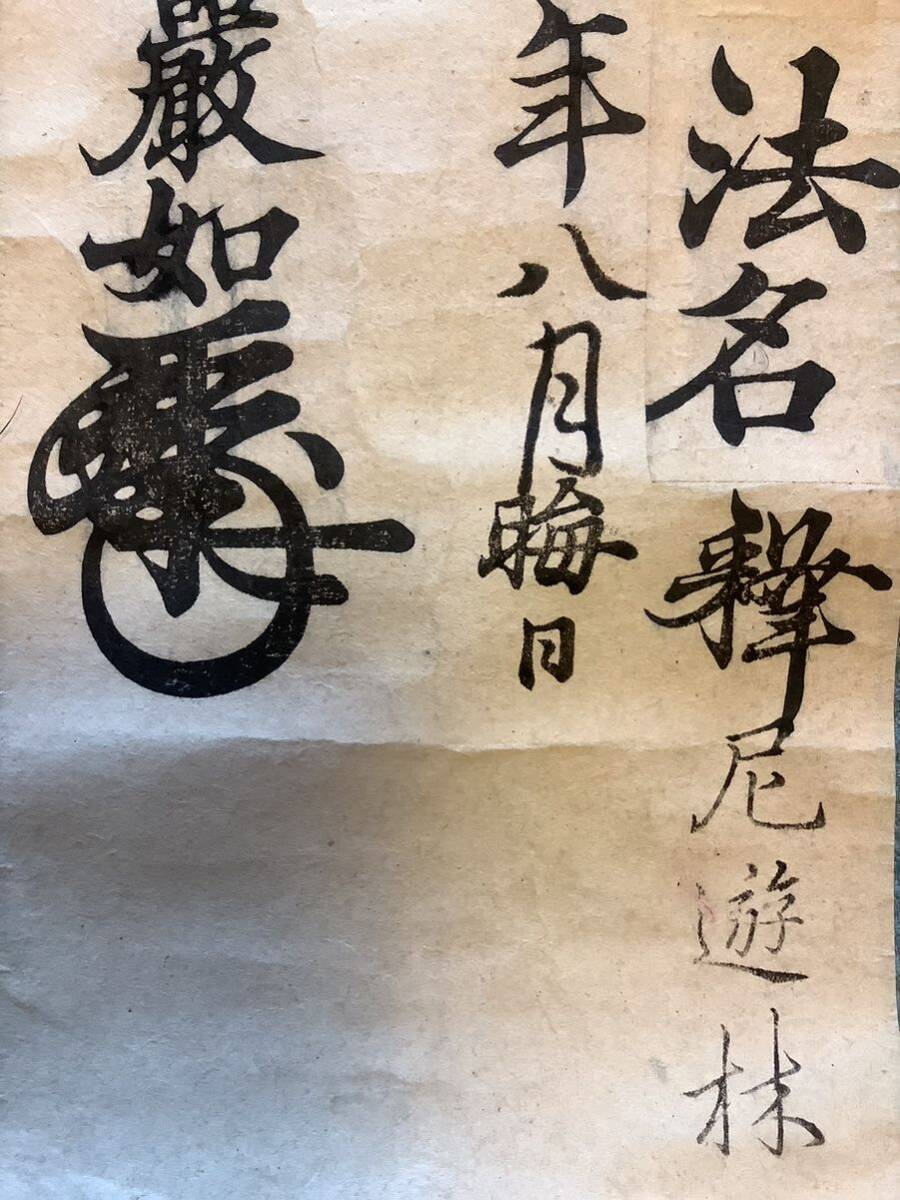 法名釋尼遊林
年八月晦日
嚴如